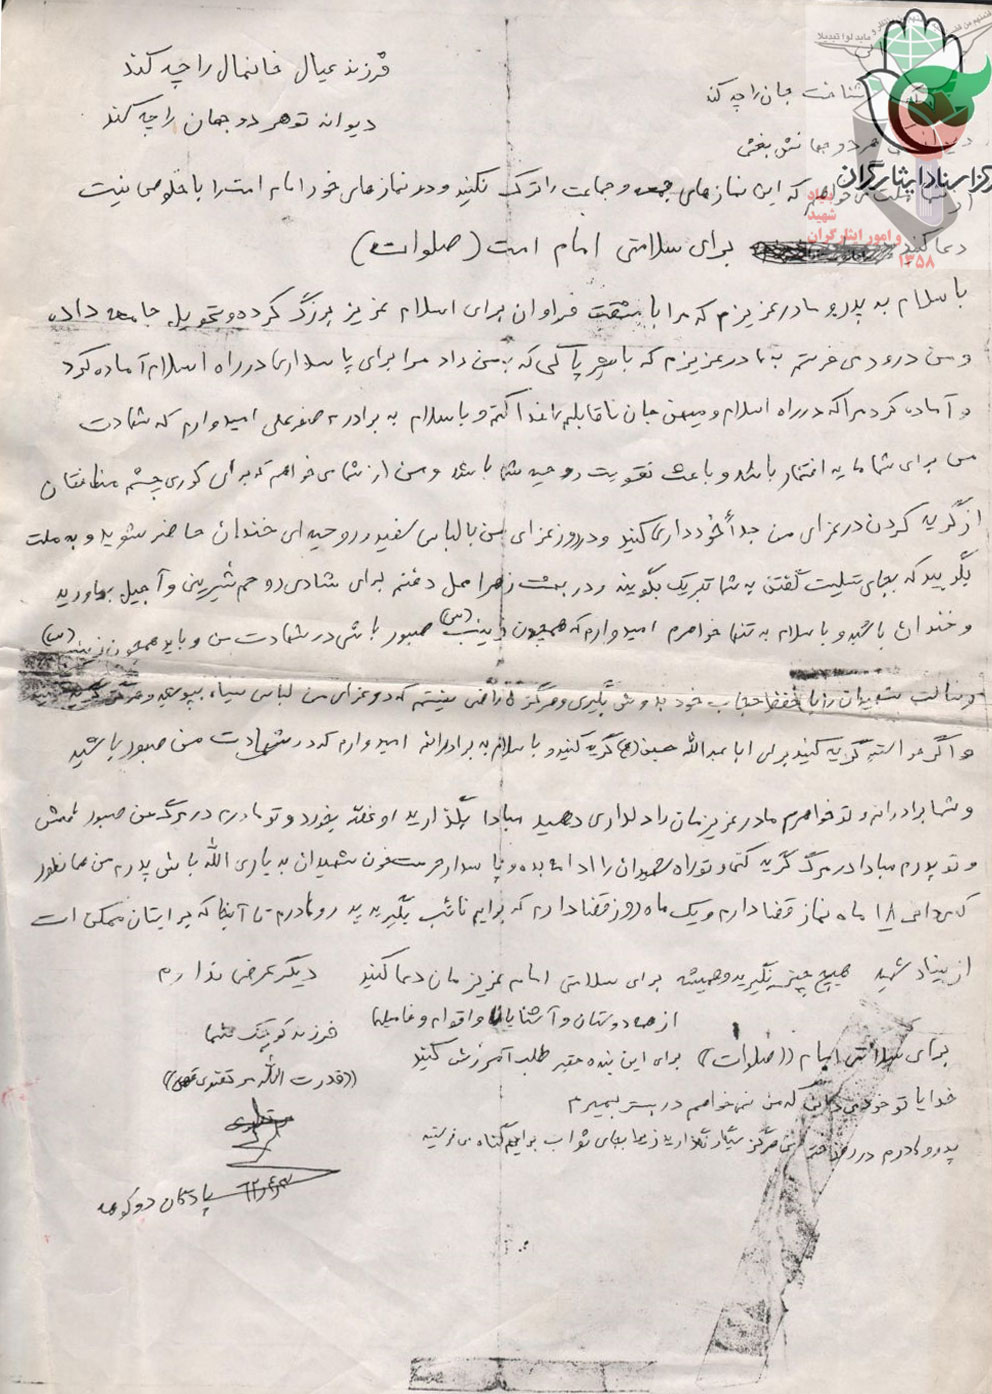 شناخت جان را چه کند
فرزند عیال خانمال را چه کند
هر دو جهانش بخشی
دیوانه تو هر دو جهان را چه کند
که این نمازهای جمعه و جماعت را ترک نکنید و در نمازهای خود امام امت را با خلوص نیت
دعا کنید برای سلامتی امام امت (صلوات)
با سلام به پدر و مادر عزیزم که مرا با مشقت فراوان برای اسلام عزیز بزرگ کرده و تحویل جامعه داده
و من درود می فرستم به مادر عزیزم که با شیر پاکی که به من داد مرا برای پاسداری در راه اسلام آماده کرد
و آماده کرد مرا که در راه اسلام و میهن جان ناقابلم را فدا کنم و با سلام به برادرم صفرعلی امیدوارم که شهادت
من برای شما مایه افتخار باشد و باعث تقویت روحیه شما باشد و من از شما می خواهم که برای کوری چشم منافقان
از گریه کردن در عزای من جداً خودداری کنید و در روز عزای من با لباس سفید و روحیه ای خندان حاضر شوید و به ملت
بگویید که بجای تسلیت گفتن به شما تبریک بگویند و در بهشت زهرا محل دفنم برای شادی روحم شیرینی و آجیل بیاورید
و خندان باشید و با سلام به تنها خواهرم امیدوارم که همچون زینب (س) صبور باشی در شهادت من و باید همچون زینب (س)
رسالت شهیدان را با حفظ حجاب خود بدوش بگیری و هرگز راضی نیستم که در عزای من لباس سیاه بپوشید و هرگز گریه کنید
و اگر خواستید گریه کنید برای ابا عبدالله حسین (ع) گریه کنید و با سلام به برادرانم امیدوارم که در شهادت من صبور باشید
و شما برادرانم و تو خواهرم مادر عزیزمان را دلداری دهید مبادا بگذارید او غصه بخورد و تو مادرم در مرگ من صبور باش
و تو پدرم مبادا در مرگ گریه کنی و تو راه شهیدان را ادامه بده و پاسدار حرمت خون شهیدان به یاری الله باش پدرم من همانطور
که می دانی ۱۸ ماه نماز قضا دارم و یک ماه روزه قضا دارم که برایم نائب بگیرید پدر و مادرم تا آنجا که برایتان ممکن است
از بنیاد شهید هیچ چیز نگیرید و همیشه برای سلامتی امام عزیزمان دعا کنید دیگر عرضی ندارم
از همه دوستان و آشنایان و اقوام و فامیلها
فرزند کوچک شما
برای سلامتی امام ((صلوات)) برای این بنده حقیر طلب آمرزش کنید
((قدرت الله
خدایا تو خود می دانی که من نمی خواهم در بستر بمیرم
پدر و مادرم در هرگز سیگار نگذارید زیرا بجای ثواب برایم گناه می فرستید
پادگان دوکوهه
مرکز اسناد ایثارگران
بنیاد
شهید
و امور ایثارگران
۱۳۵۸